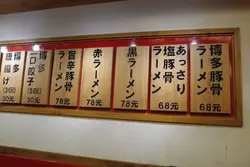 博多豚骨
ラーメン
68元
あっさり
塩豚骨
ラーメン
68元
黒ラーメン
78元
赤ラーメン
78元
旨辛豚骨
ラーメン
78元
博多
一口餃子
30元
博多
唐揚げ
30元